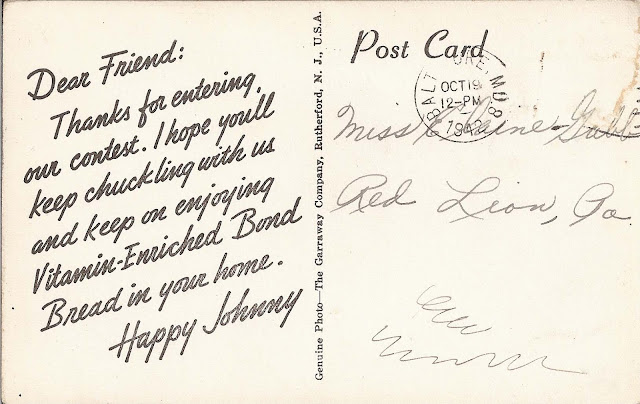 Dear Friend:
Thanks for entering
our contest. I hope you'll
keep chuckling with us
and keep on enjoying
Vitamin-Enriched Bond
Bread in your home.
Happy Johnny
Genuine Photo—The Garraway Company, Rutherford, N. J., U.S.A.
Post Card
BALTIMORE, MD. 8
OCT 19
12-PM
1942
Miss Elaine
Red Lion, Pa